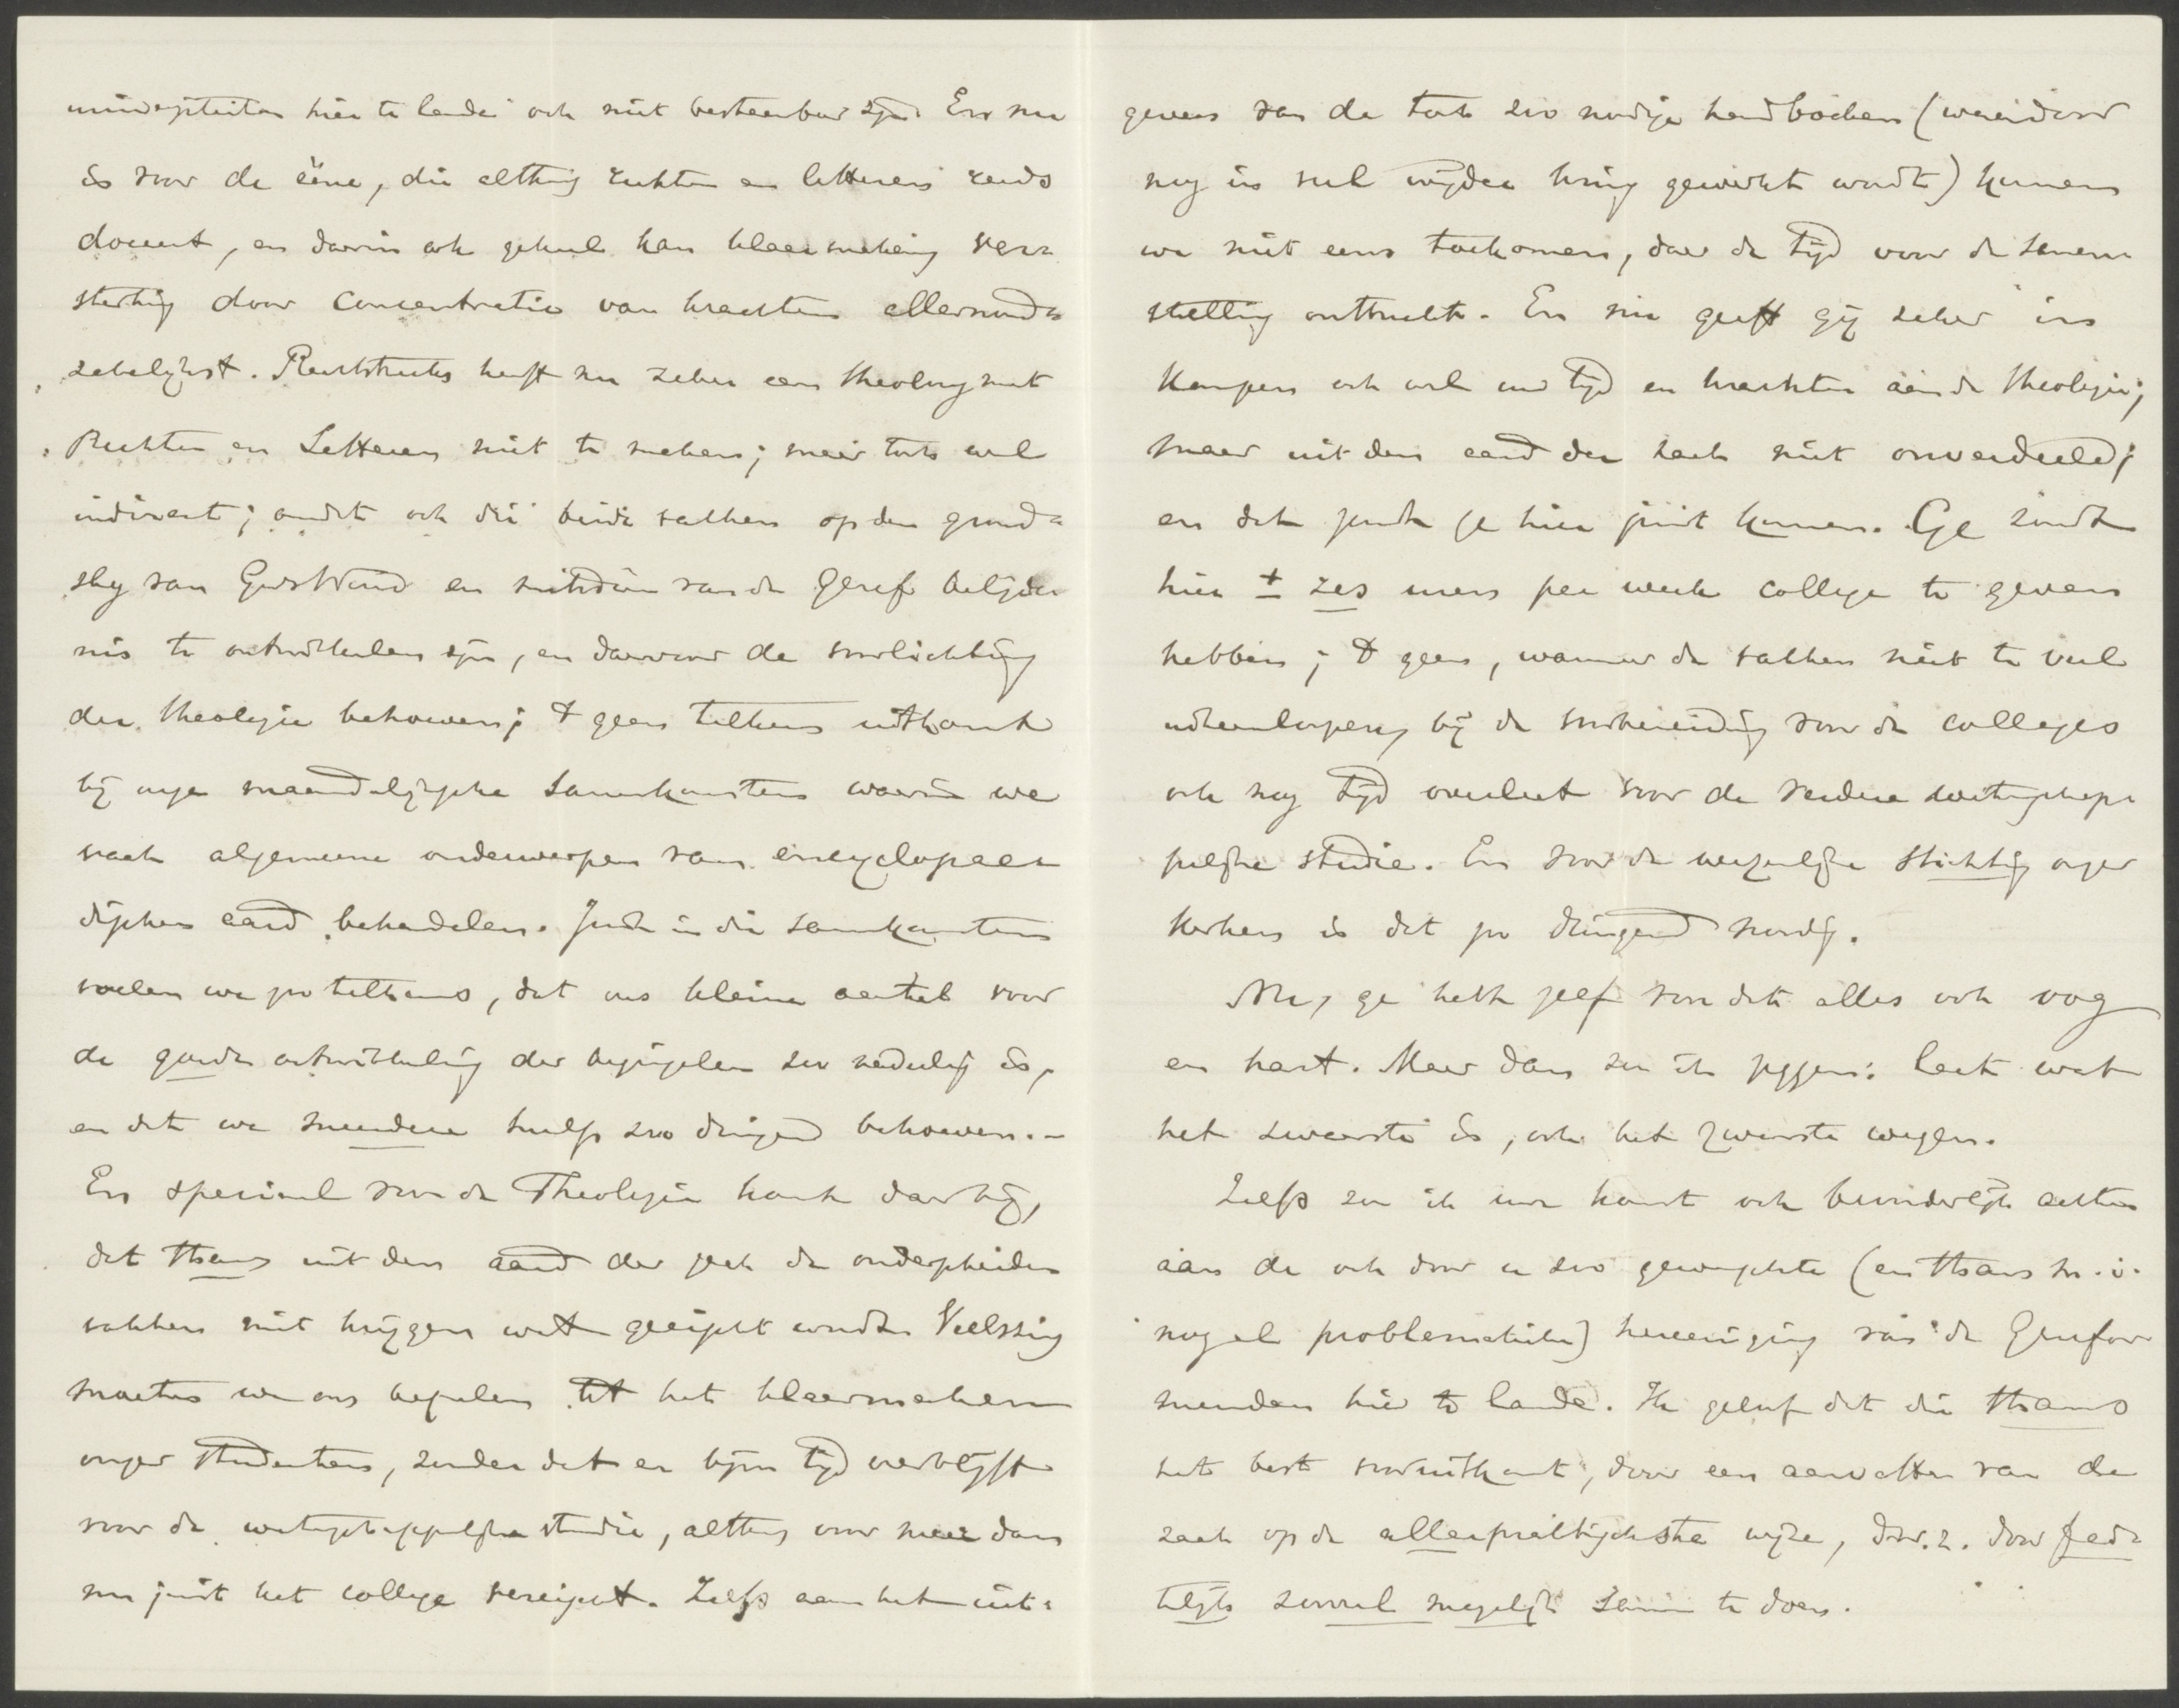 universiteiten hier te lande ook niet bestaanbaar zijn. En nu
is voor de ééne, die althans rechten en letteren reeds
doceert, en daarin ook geheel kan klaarmaken, ver-
sterking door concentratie van krachten allernood-
zakelijkst. Rechtstreeks heeft nu zeker een theoloog met
Rechten en Letteren niet te maken; maar toch wel
indirect; omdat ook die beide vakken op den grond-
slag van Gods Woord en mitsdien van de Geref. belijde-
nis te ontwikkelen zijn, en daarvoor de voorlichting
der theologie behoeven; 't geen telkens uitkomt
bij onze maandelijksche samenkomsten waarin we
vaak algemeene onderwerpen van encyclopae-
dischen aard behandelen. Juist in die samenkomsten
voelen we zoo telkens, dat ons kleine aantal voor
de goede ontwikkeling der beginselen zoo nadeelig is,
en dat we meerdere hulp zoo dringend behoeven.-
En speciaal voor de Theologie komt daarbij,
dat thans uit den aard der zaak de onderscheiden
vakken niet krijgen wat geëischt wordt. Veelszins
moeten we ons bepalen tot het klaarmaken
onzer studenten, zonder dat er bijna tijd overblijft
voor de wetenschappelijke studie, althans voor meer dan
nu juist het college vereischt. Zelfs aan het uit-
geven van de toch zoo noodige handboeken (waardoor
nog in veel wijder kring gewerkt wordt) kunnen
we niet eens toekomen, daar de tijd voor de samen-
stelling ontbreekt. En nu geeft gij zeker in
Kampen ook wel uw tijd en krachten aan de theologie;
maar uit den aard der zaak niet onverdeeld;
en dat zoudt ge hier juist kunnen. Ge zoudt
hier ± zes uren per week college te geven
hebben; 't geen, wanneer de vakken niet te veel
uiteenloopen, bij de voorbereiding voor de colleges
ook nog tijd overlaat voor de verdere wetenschap-
pelijke studie. En voor de wezenlijke stichting onzer
Kerken is dat zoo dringend noodig.
Nu, ge hebt zelf voor dat alles ook oog
en hart. Maar dan zou ik zeggen: laat wat
het zwaarste is, ook het zwaarste wegen.
Zelfs zou ik uw komst ook bevorderlijk achten
aan de ook door u zoo gewenschte (en thans m.i.
nog al problematieke) hereeniging van de Gerefor-
meerden hier te lande. Ik geloof dat die thans
het best vooruitkomt, door een aanvatten van de
zaak op de allerpraktischste wijze, d.w.z. door fei-
telijk zooveel mogelijk samen te doen.